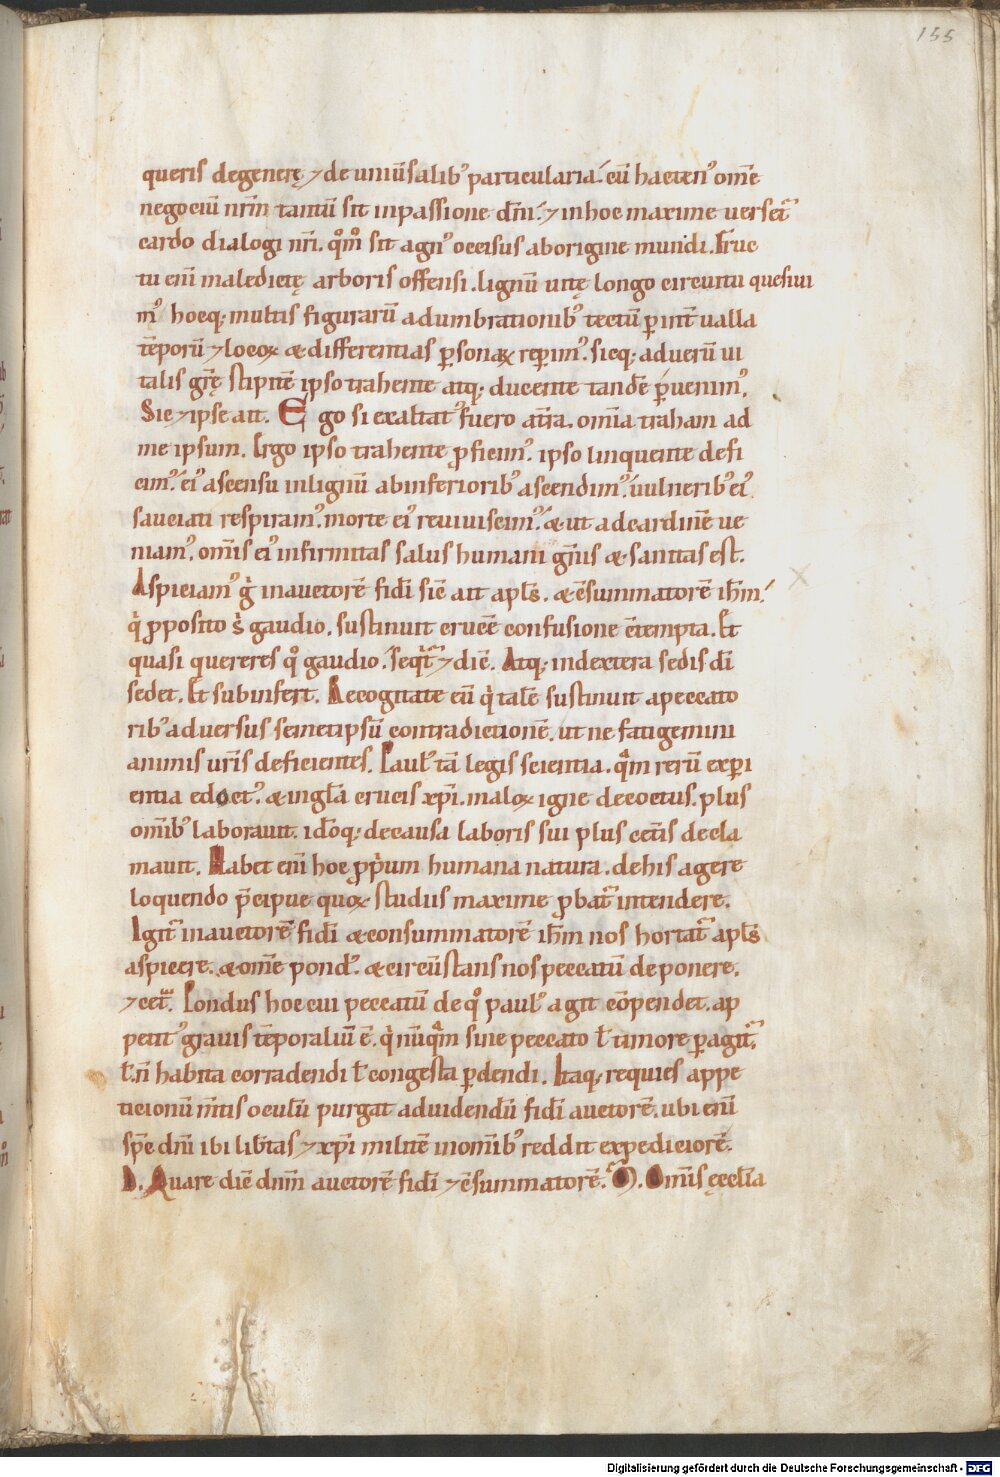 155
queris degenerę ⁊ de uniũsalibꝰ particularia. cũ hactenꝰ om̃e
negociũ nrm̃ tantũ sit inpassione dñi. ⁊ inhoc maxime uerset̃
cardo dialogi nr̃i. qm̊ sit agnꝰ occisus aborigine mundi. Fruc
tu eni͂ maledictę arboris offensi. lignũ uitę longo circuitu quesiui
mꝰ hocq; multis figurarũ adumbrationibꝰ tectũ ꝑ int̃ualla
tẽporũ ⁊ locoꝝ & differentias ꝑsonaꝝ reꝑimꝰ. sicq; aduerũ ui
talis gr̃ę stipitẽ ipso trahente atq; ducente tandẽ ꝑuenimꝰ.
Sic ⁊ ipse ait. Ego si exaltatꝰ fuero at̃ra. om̃ia traham ad
me ipsum. Ergo ipso trahente ꝓficimꝰ. ipso linquente defi
cimꝰ. eiꝰ ascensu inlignũ abinferioribꝰ ascendimꝰ. uulneribꝰ eiꝰ
sauciati respiramꝰ. morte eiꝰ reuiuiscimꝰ. & ut adcardinẽ ue
niamꝰ. om̃is eiꝰ infirmitas salus humani gñis & sanitas est.
Aspiciamꝰ g̊ inauctorẽ fidi͂ sic̃ ait apl̃s. & c̃summatorẽ ih̃m.
q̇ ꝓposito s̊ gaudio. sustinuit crucẽ confusione c̃tempta. Et
quasi quereres qͦ gaudio. seqit̃ ⁊ dic̃. Atq; indextera sedis di͂
sedet. Et subinfert. Recogitate eni͂ q̇ talẽ sustinuit apeccato
ribꝰ aduersus semetipsũ contradictionẽ. ut ne fatigemini
animis ur̃is deficientes. Paulꝰ tã legis scientia. qᷓm rerũ exꝑi
entia edoctꝰ. & ingl̃a crucis xp̃i. maloꝝ igne decoctus. plus
om̃ibꝰ laborauit. id̊oq; decausa laboris sui plus cet̃is decla
mauit. Habet eni͂ hoc ꝓp̊um humana natura. dehis agere
loquendo p̃cipue quoꝝ studiis maxime ꝓbat̃ intendere.
Igit̃ inauctorẽ fidi͂ & consummatorẽ ih̃m nos hortat̃ apl̃s
aspicere. & om̃e pondꝰ. & circũstans nos peccatũ deponere.
⁊ cet̃. Pondus hoc cui peccatũ de qͦ paulꝰ agit cõpendet. ap
petitꝰ grauis tẽporaliũ ẽ. q̇ nũqᷓm sine peccato ł timore ꝑagit̃.
ł ñ habita corradendi ł congesta ꝑdendi. Itaq; requies appe
ticionũ m̃tis oculũ purgat aduidendũ fidi͂ auctorẽ. ubi eni͂
sp̃c dñi ibi lib̃tas ⁊ xp̃i militẽ inom̃ibꝰ reddit expediciorẽ.
D. Quare dic̃ dnm̃ auctorẽ fidi͂ ⁊ c̃summatorẽ. M. Omis̃ ęccl̃ia
Digitalisierung gefördert durch die Deutsche Forschungsgemeinschaft - DFG